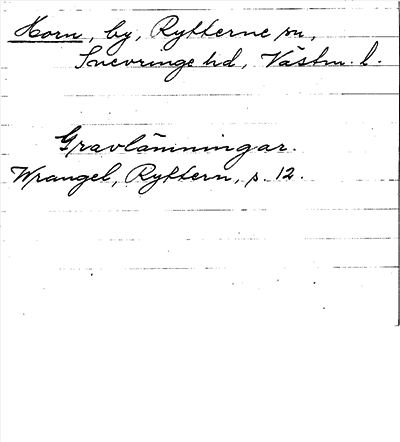 Horn, by, Rytterne sn,
Snevringe hd, Västm. l.
Gravlämningar.
Wrangel, Ryttern, s. 12.